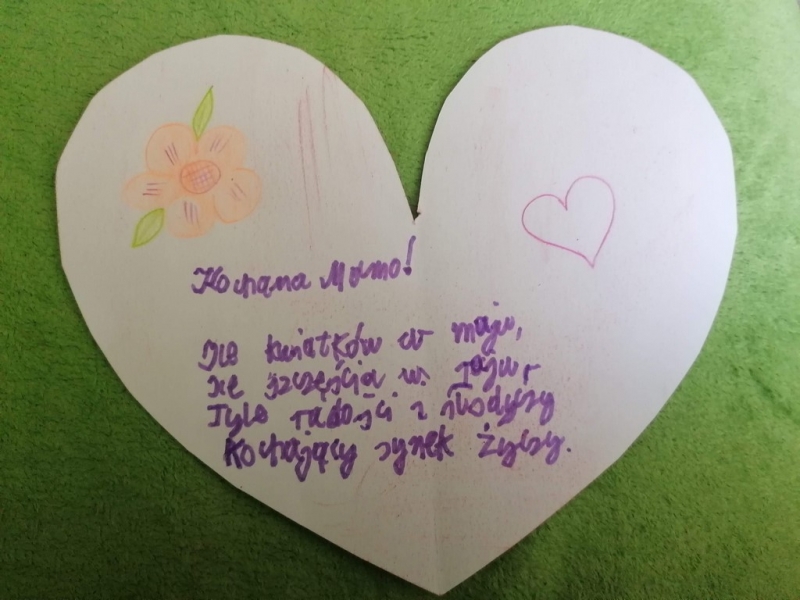 Kochana Mamo!
Ile kwiatków w maju,
ile szczęścia w raju,
Tyle radości i słodyczy
Kochający synek życzy.